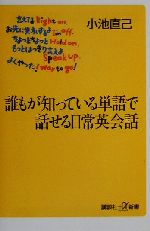 小池直己
言えてる Right on.
お先に失礼するよ I'm off.
ちょっと待って Hold on.
もっとはっきり言えよ Speak up.
よくやった! Way to go!
誰もが知っている単語で
話せる日常英会話
講談社+α新書